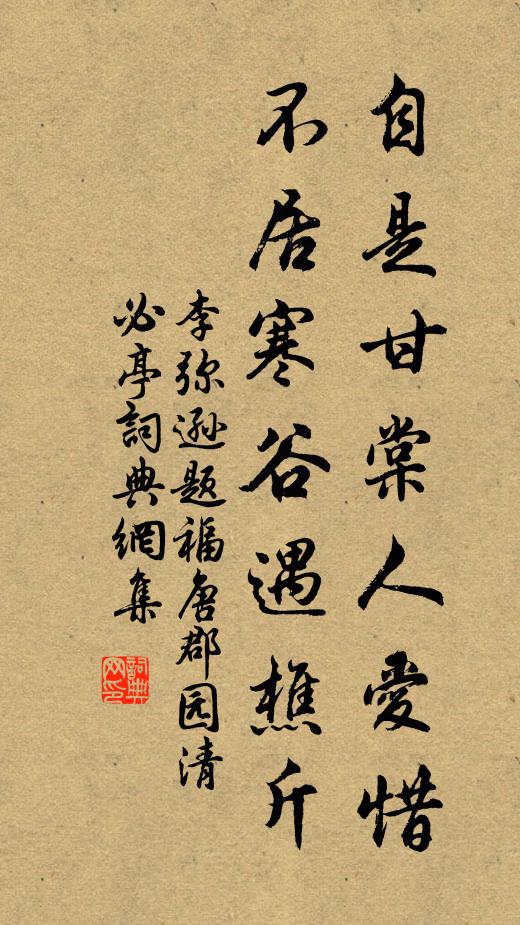 自是甘棠人愛惜
不居寒谷遇樵斤
李弥遜题福唐郡园清
必亭詞典網集
詞典
网印